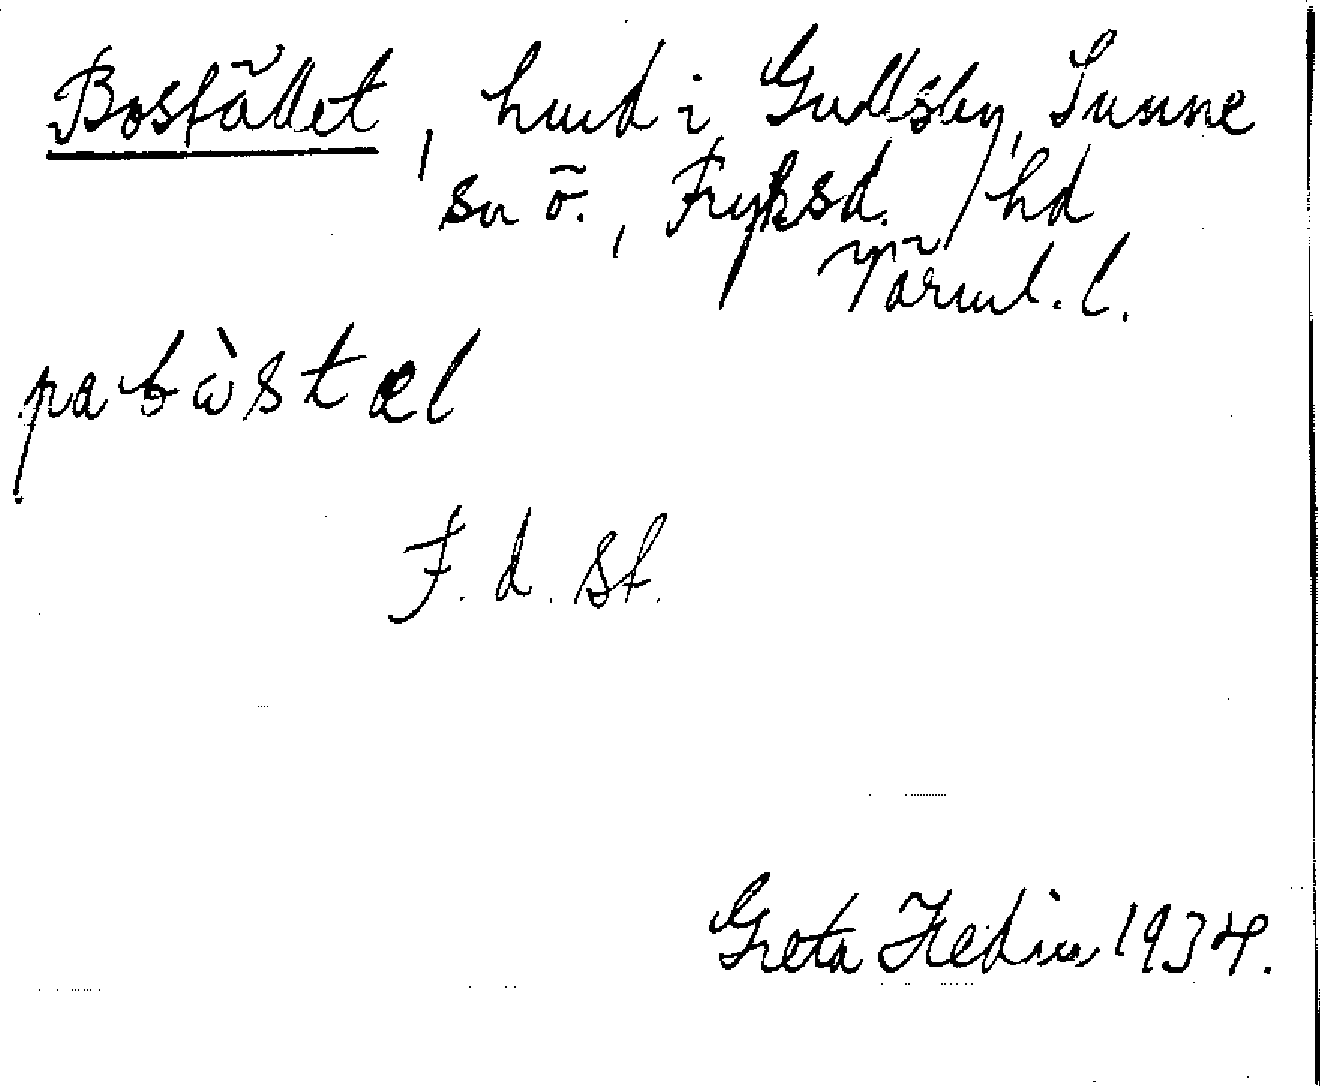 Bostället, hmd i Gullsby, Sunne
sn ö., Fryksd. hd
Värml. l.
pa bὼstæl
F. d. st.
Greta Hedin 1934.